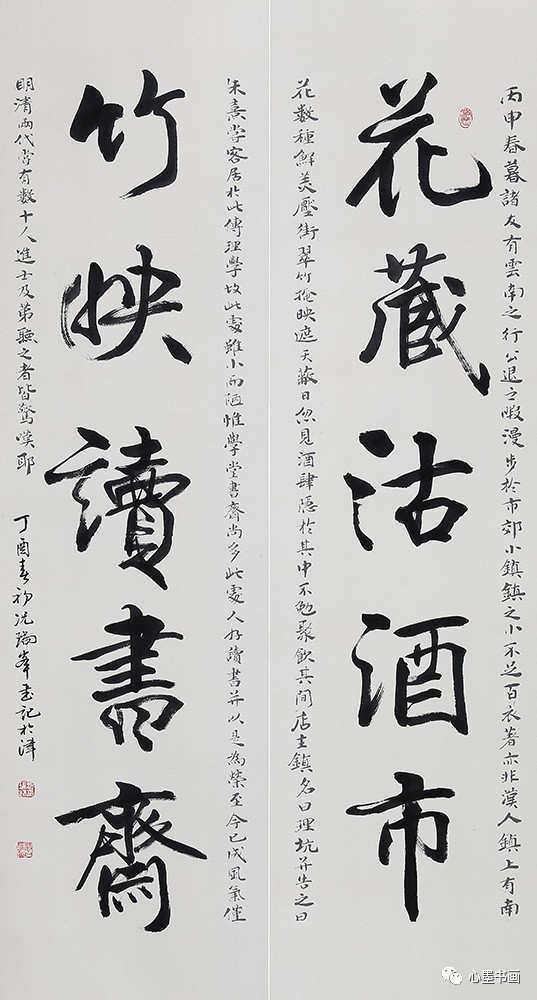 花藏沽酒市
丙申春暮諸友有雲南之行公退之暇漫步於市郊小鎮鎮之小不足百衣著亦非漢人鎮上有南
花数種鮮美壓街翠竹掩映遮天蔽日忽見酒肆隱於其中不勉聚飲其間店主鎮名曰理坑并告之曰
竹映讀書齋
朱熹嘗客居於此傳理學故此處雖小而陋惟學堂書齋尚多此處人好讀書并以是為榮至今已成風氣僅
明清兩代嘗有數十人進士及第聽之者皆驚嘆耶
丁酉春初沈瑞峯書記於津
心墨书画